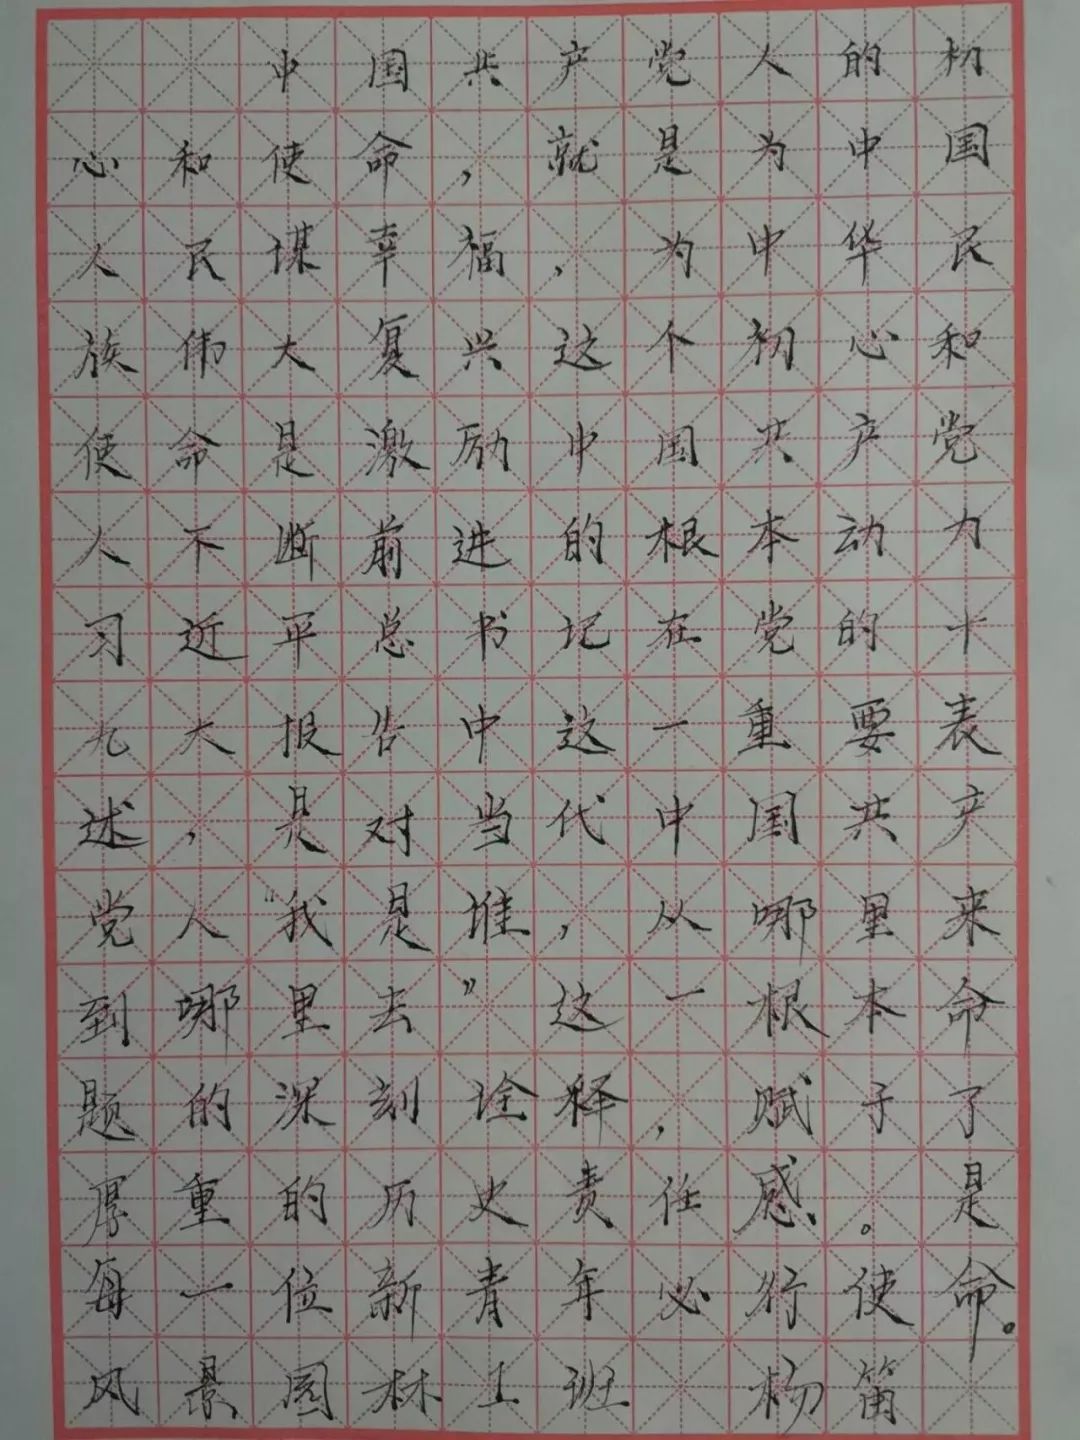 中国共产党人的初
心和使命，就是为中国
人民谋幸福，为中华民
族伟大复兴这个初心和
使命是激励中国共产党
人不断前进的根本动力
习近平总书记在党的十
九大报告中这一重要表
述，是对当代中国共产
党人“我是谁，从哪里来
到哪里去”这一根本命
题的深刻诠释，赋予了
厚重的历史责任感。是
每一位新青年必行使命。
风景园林1班 杨笛